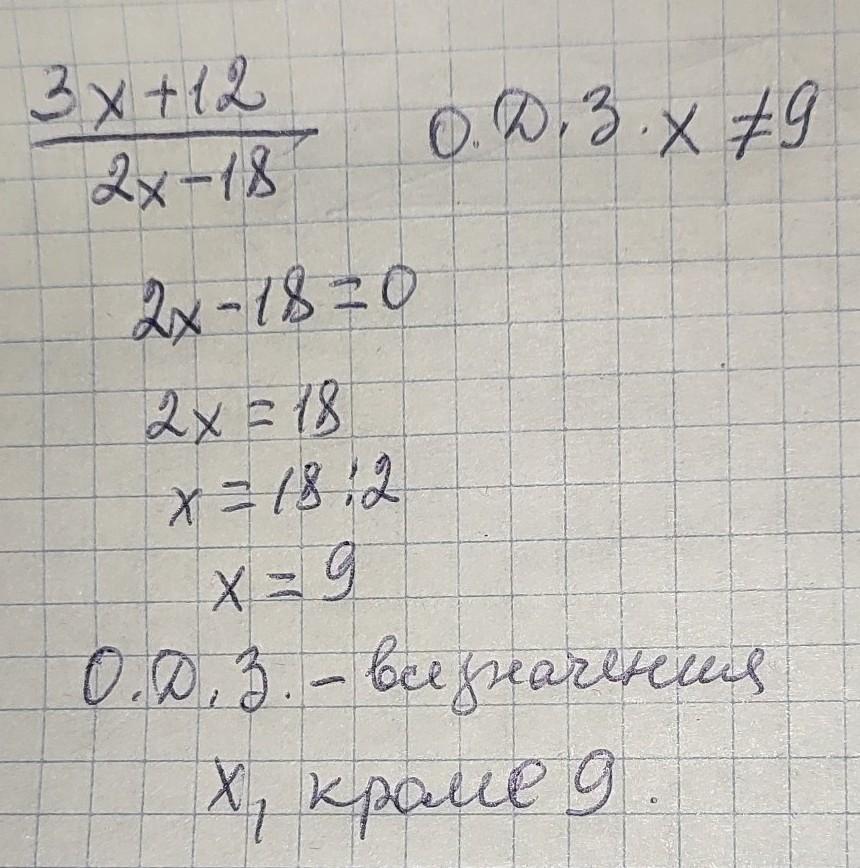 3x+12
2x-18
О.Д.З. x ≠ 9
2x-18=0
2x = 18
x = 18:2
x = 9
О.Д.З. - все значения
x, кроме 9.